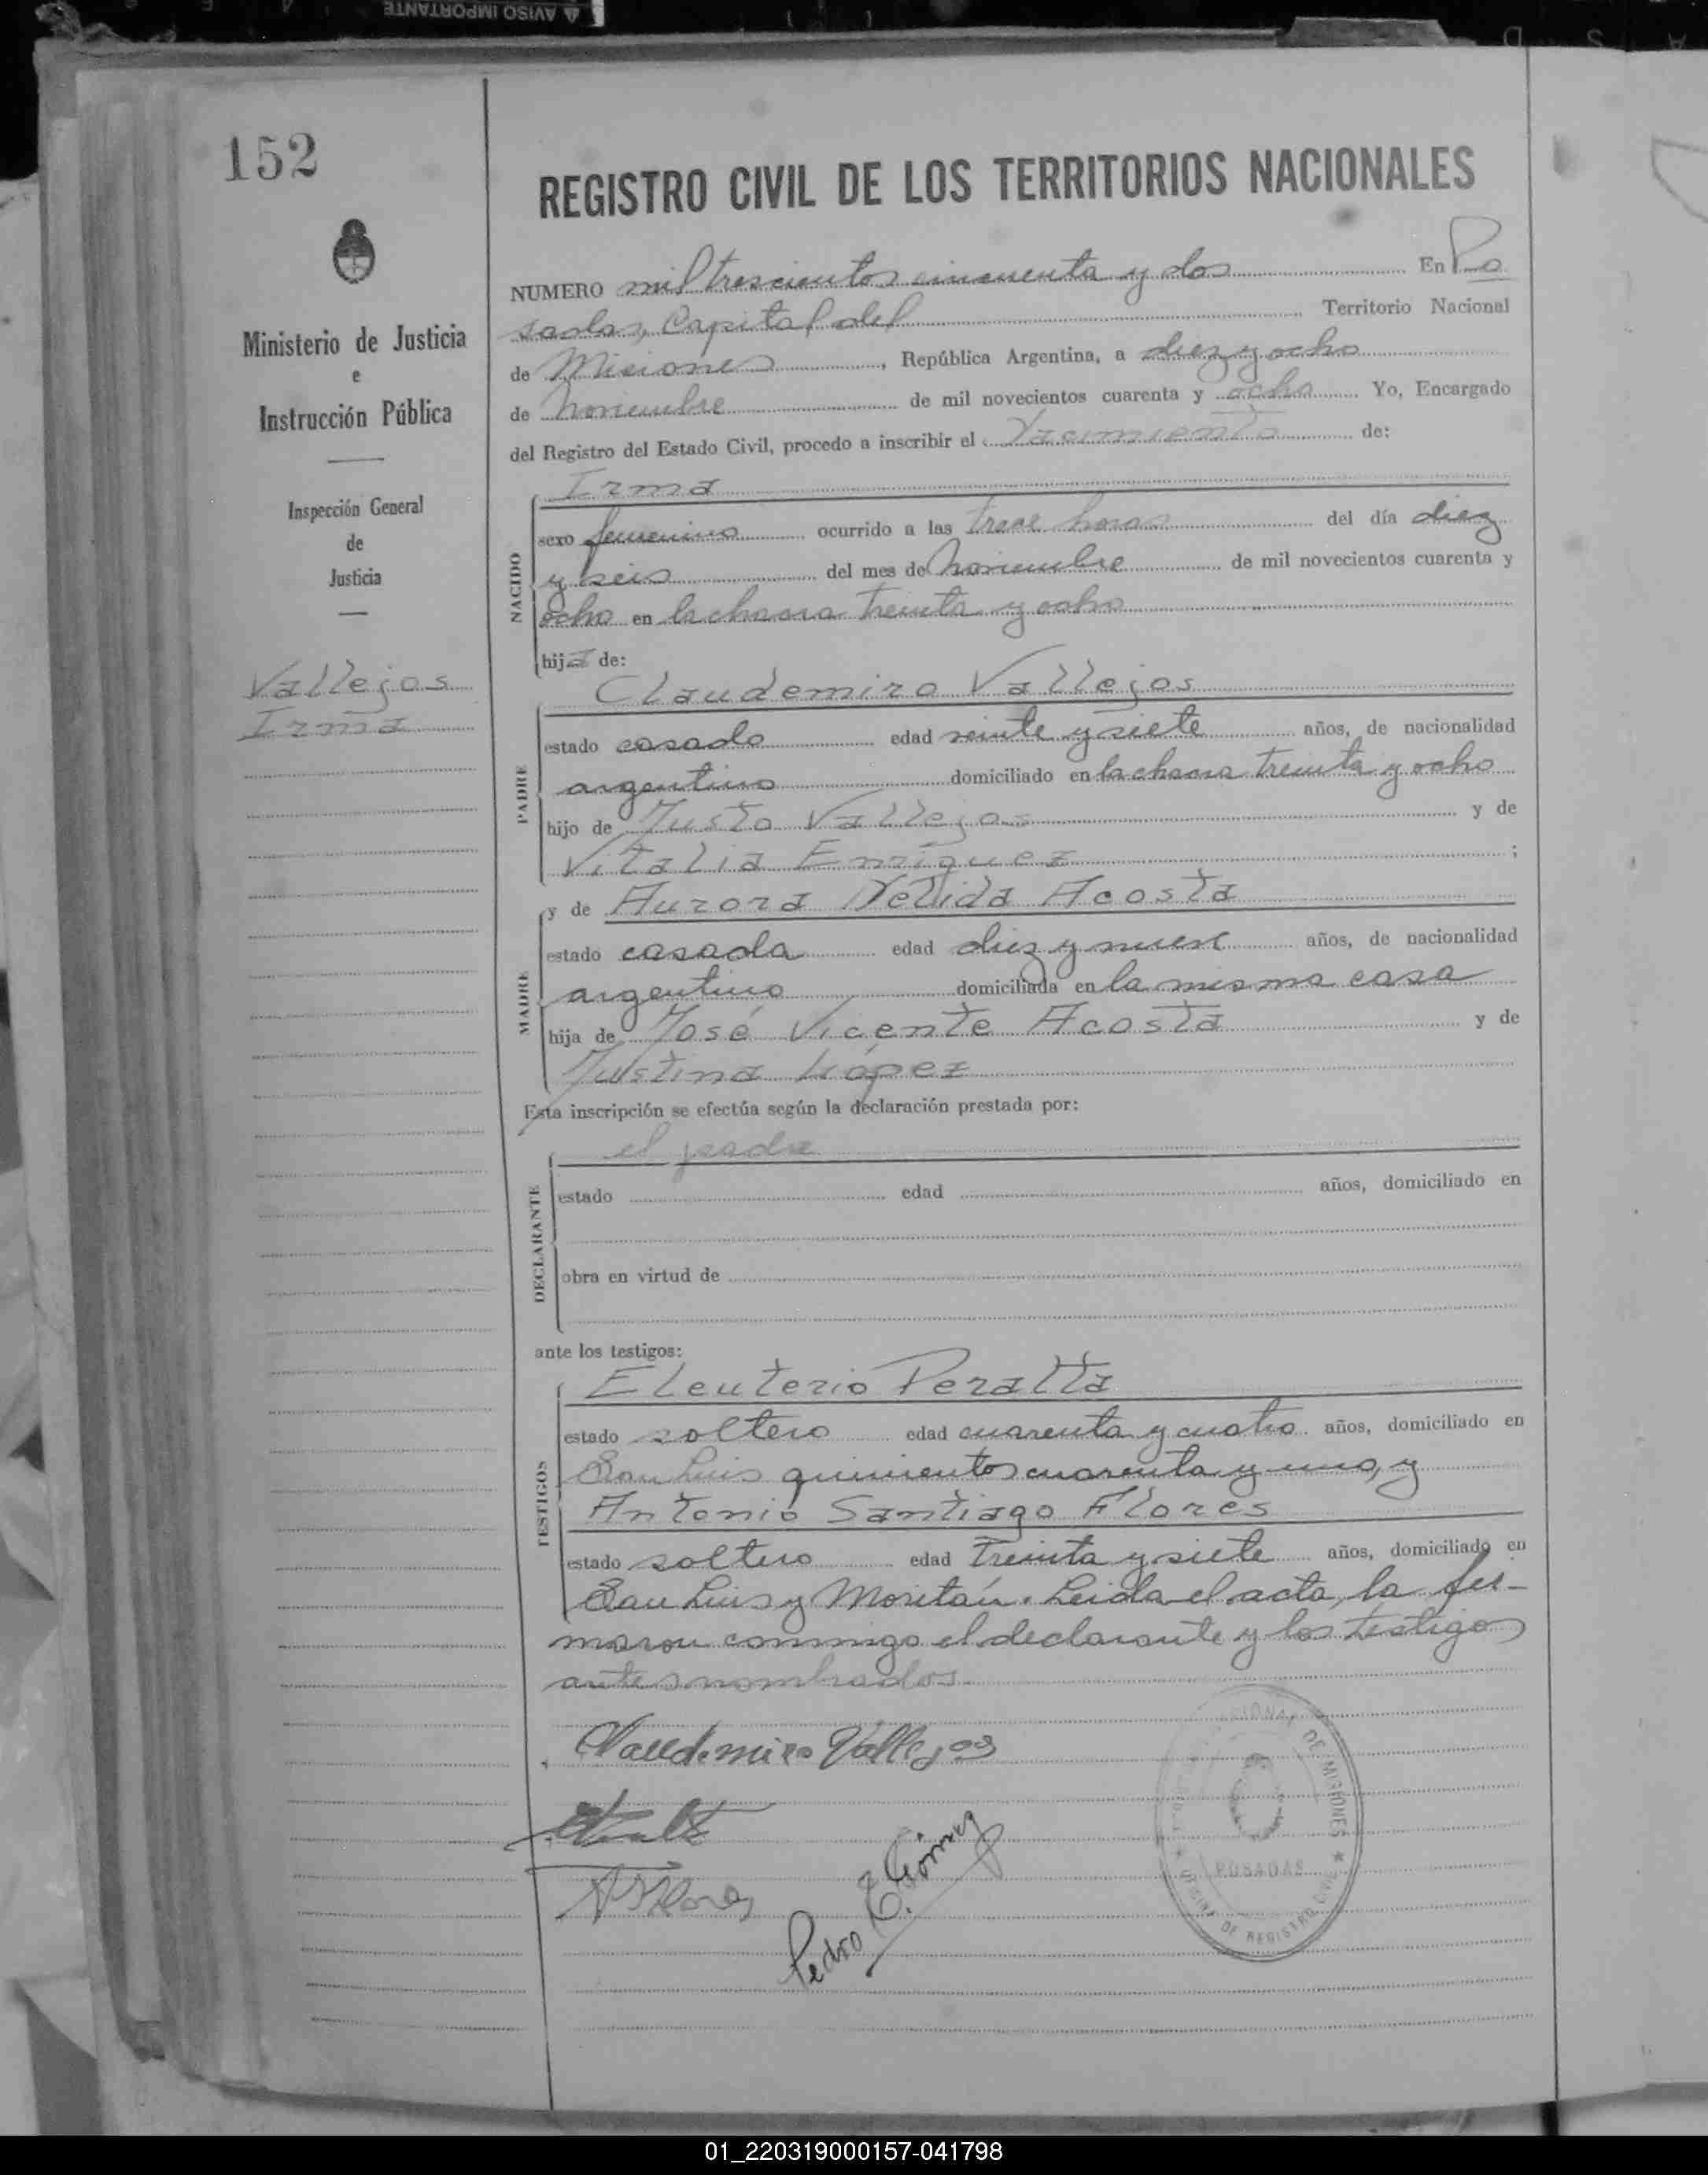 AVISO IMPORTANTE
152
REGISTRO CIVIL DE LOS TERRITORIOS NACIONALES
NUMERO mil trescientos cincuenta y dos En Po
sadas, Capital del Territorio Nacional
de Misiones, República Argentina, a diez y ocho
de noviembre de mil novecientos cuarenta y ocho Yo, Encargado
del Registro del Estado Civil, procedo a inscribir el Nacimiento de:
Ministerio de Justicia
e
Instrucción Pública
Inspección General
de
Justicia
Vallejos
Irma
NACIDO
Irma
sexo femenino ocurrido a las trece horas del día diez
y seis del mes de noviembre de mil novecientos cuarenta y
ocho en la chacra treinta y ocho
hija de:
PADRE
Claudemiro Vallejos
estado casado edad veinte y siete años, de nacionalidad
argentino domiciliado en la chacra treinta y ocho
hijo de Justo Vallejos y de
Vitalia Enríquez ;
MADRE
y de Aurora Nélida Acosta
estado casada edad diez y nueve años, de nacionalidad
argentino domiciliada en la misma casa
hija de José Vicente Acosta y de
Justina López
Esta inscripción se efectúa según la declaración prestada por:
DECLARANTE
el padre
estado edad años, domiciliado en
obra en virtud de
ante los testigos:
TESTIGOS
Eleuterio Peralta
estado soltero edad cuarenta y cuatro años, domiciliado en
San Luis quinientos cuarenta y uno, y
Antonio Santiago Flores
estado soltero edad treinta y siete años, domiciliado en
San Luis y Moritán. Leida el acta, la fir-
maron conmigo el declarante y los testigos
antes nombrados.
Claudemiro Vallejos
A S Flores
Pedro E. Gómez
DE MISIONES
POSADAS
OFICINA DE REGISTRO CIVIL
01_220319000157-041798